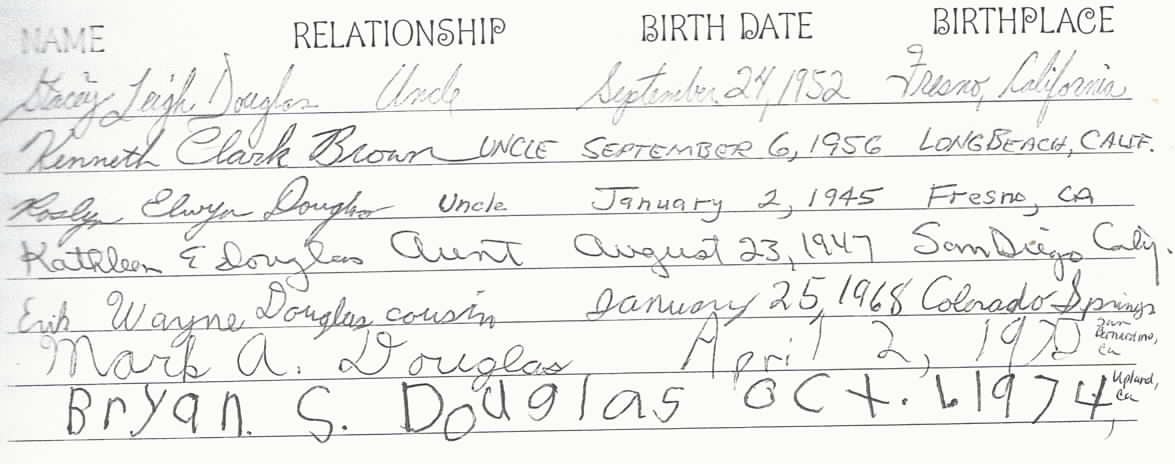 NAME RELATIONSHIP BIRTH DATE BIRTHPLACE
Stacey Leigh Douglas Uncle September 24, 1952 Fresno, California
Kenneth Clark Brown UNCLE SEPTEMBER 6, 1956 LONG BEACH, CALIF.
Roslyn Elwyn Douglas Uncle January 2, 1945 Fresno, CA
Kathleen E Douglas Aunt August 23, 1947 San Diego Calif.
Erik Wayne Douglas cousin January 25, 1968 Colorado Springs
Mark A. Douglas April 2, 1970 San Bernardino, Ca
Bryan. S. Douglas OCT. 6 1974, Upland, Ca